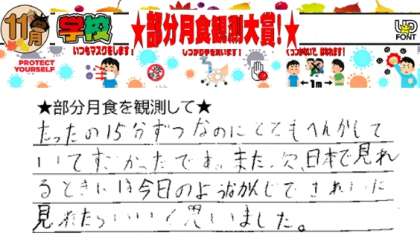 11月 学校 ★部分月食観測大賞!★
いつもマスクをします!
PROTECT YOURSELF
1m
UD FONT
★部分月食を観測して★
たったの15分ずつなのにとてもへんかして
いてすごかったです。また、次、日本で見れ
るときには今日のようなかんじできれいに
見れたらいいと思いました。